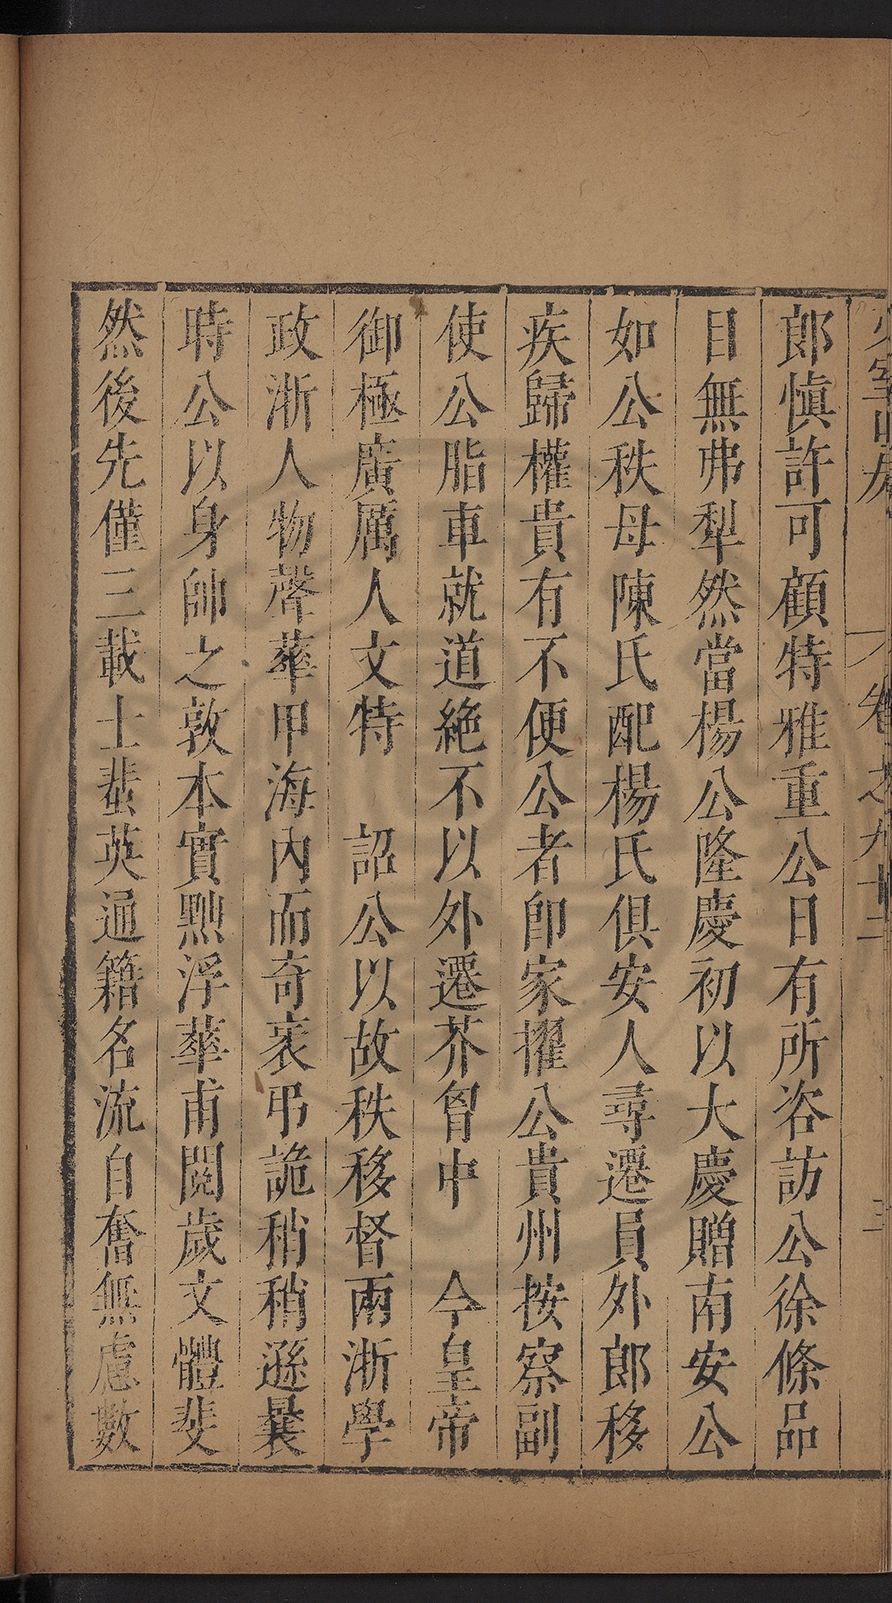 少室山房　卷之九十二　三
郎慎許可顧特雅重公日有所咨訪公徐條品
目無弗犁然當楊公隆慶初以大慶贈南安公
如公秩母陳氏配楊氏俱安人尋遷員外郎移
疾歸權貴有不便公者卽家擢公貴州按察副
使公脂車就道絶不以外遷芥胷中　今皇帝
御極廣厲人文特　詔公以故秩移督兩浙學
政浙人物聲華甲海內而奇衺弔詭稍稍遜曩
時公以身帥之敦本實黜浮華甫閱歲文體斐
然後先僅三載士蜚英通籍名流自奮無慮數